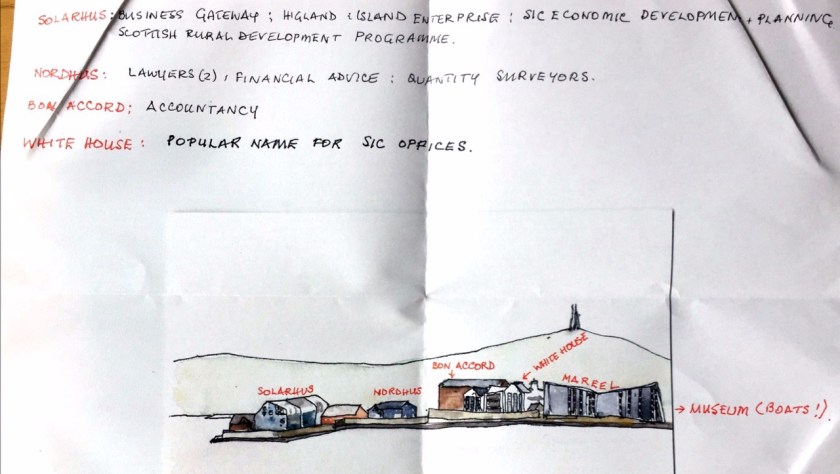 SOLARHUS: BUSINESS GATEWAY; HIGLAND & ISLAND ENTERPRISE; SIC ECONOMIC DEVELOPMEN + PLANNING
SCOTISH RURAL DEVELOPMENT PROGRAMME.
NORDHUS: LAWYERS (2), FINANCIAL ADVICE; QUANTITY SURVEYORS.
BON ACCORD; ACCOUNTANCY
WHITE HOUSE: POPULAR NAME FOR SIC OFFICES.
BON ACCORD
WHITE HOUSE
SOLARHUS
NORDHUS
MAREEL
→ MUSEUM (BOATS!).